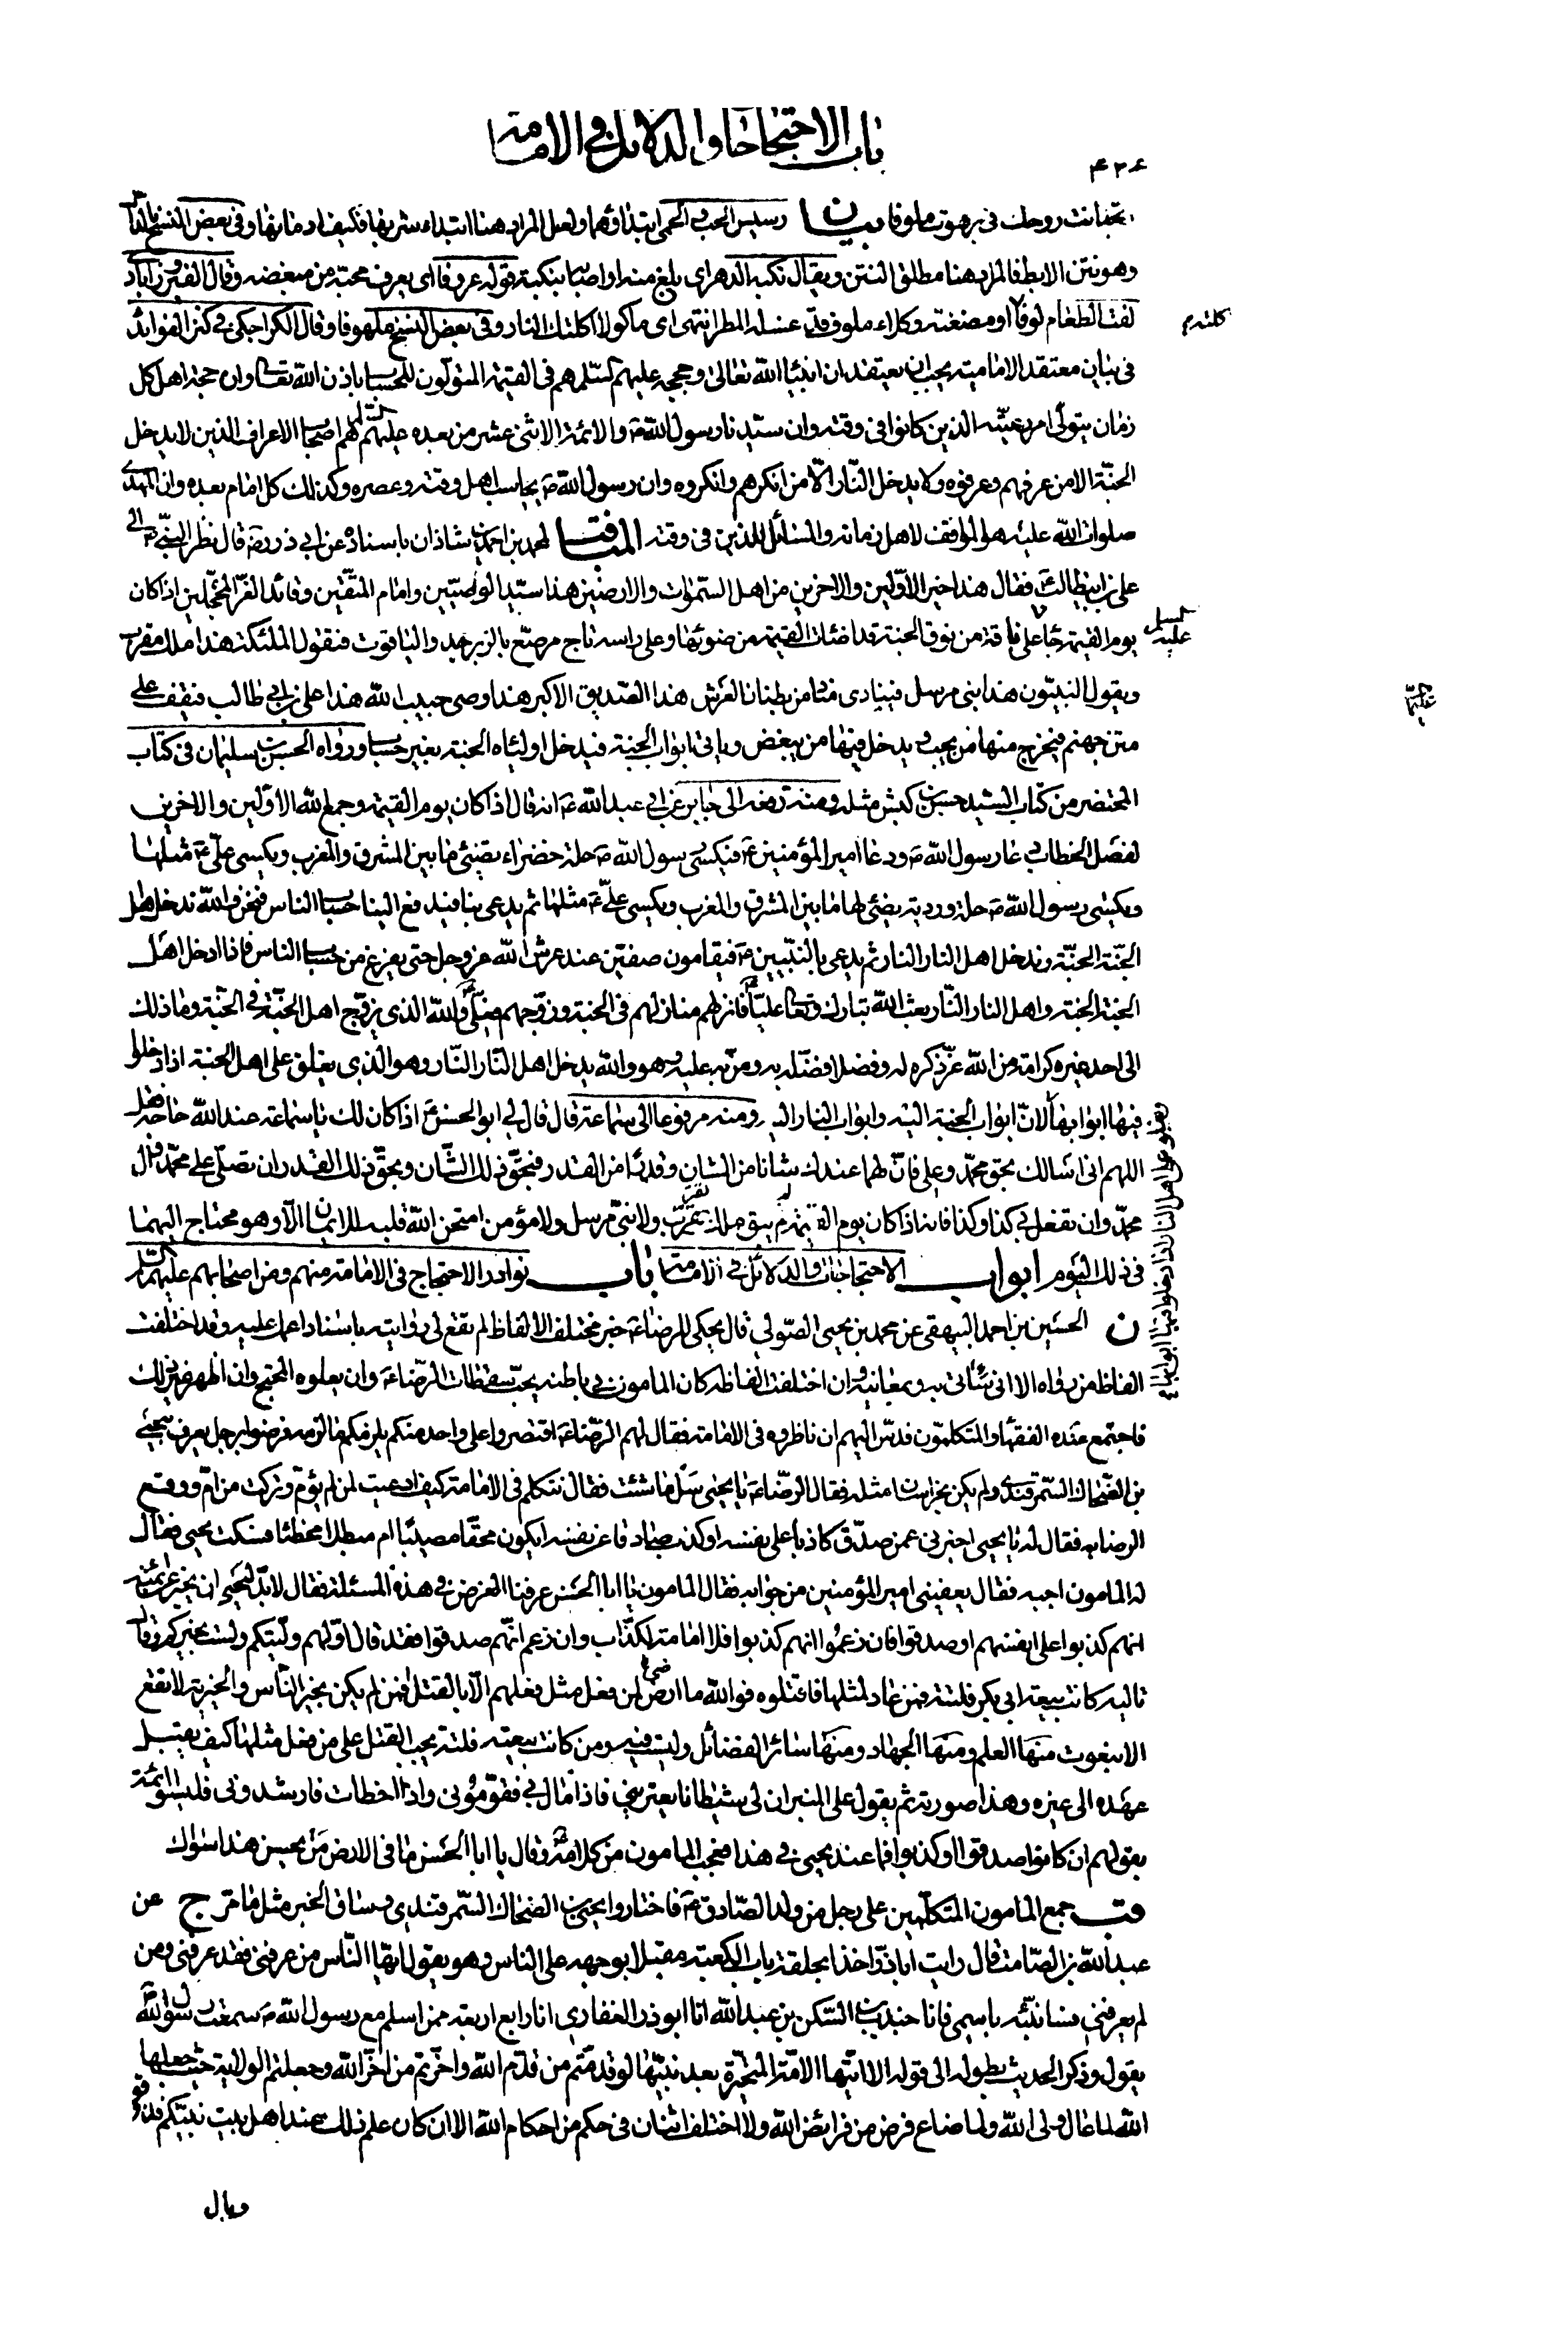 باب الاحتجاجات والدلائل في الامامة
٤٢٤
فانت روحك في برهوت ملوفا بيان رسيس الحب والحمى ابتداؤهما ولعل المراد هنا ابتداء شربها فكيف ادمانها وفي بعض النسخ بالدال
وهو نتن الابط فالمراد هنا مطلق النتن ويقال نكبه الدهر اى بلغ منه او اصابه بنكبة قوله عروفا اى يعرف محبة من مبغضه وقال الفيروزآبادي
لفت الطعام لوفا اكلته او مضغته وكلاء ملوف قد غسله المطر انتهى اى ماكولا اكلتك النار وفي بعض النسخ ملهوفا وقال الكراجكي في كنز الفوايد
في بيان معتقد الامامية يجب ان يعتقد ان انبياء الله تعالى وحججه عليهم السلم هم في القيمة المتولون للحساب باذن الله تعالى وان حجة اهل كل
زمان يتولى امر رعيته الذين كانوا في وقته وان سيدنا رسول الله ص والائمة الاثنى عشر من بعده عليهم السلم هم اصحاب الاعراف الذين لا يدخل
الجنة الا من عرفهم وعرفوه ولا يدخل النار الا من انكرهم وانكروه وان رسول الله ص يحاسب اهل وقته وعصره وكذلك كل امام بعده وان المهدى
صلوات الله عليه هو المواقف لاهل زمانه والمسائل للذين في وقته المناقب لمحمد بن احمد بن شاذان باسناده عن ابي ذر رض قال نظر النبي ص الى
على بن ابيطالب ع فقال هذا خير الاولين والاخرين من اهل السموات والارضين هذا سيد الوصيين وامام المتقين وقائد الغر المحجلين اذا كان
يوم القيمة جاء على ناقة من نوق الجنة قد اضائت القيمة من ضوئها وعلى راسه تاج مرصع بالزبرجد والياقوت فتقول الملئكة هذا ملك مقرب
ويقول النبيون هذا نبى مرسل فينادى مناد من بطنان العرش هذا الصديق الاكبر هذا وصى حبيب الله هذا على بن ابي طالب فيقف على
متن جهنم فيخرج منها من يحب ويدخل فيها من يبغض وياتي ابواب الجنة فيدخل اولياءه الجنة بغير حساب ورواه الحسن بن سليمان في كتاب
المحتضر من كتاب السيد حسن بن كبش مثله ومنه رفعه الى جابر عن ابي عبد الله ع انه قال اذا كان يوم القيمة وجمع الله الاولين والاخرين
لفصل الخطاب دعا رسول الله ص ودعا امير المؤمنين ع فيكسى رسول الله ص حلة خضراء تضيئ ما بين المشرق والمغرب ويكسى على ع مثلها
ويكسى رسول الله ص حلة وردية يضيئ لها ما بين المشرق والمغرب ويكسى على ع مثلها ثم يدعى بنا فيدفع الينا حساب الناس فنحن والله ندخل اهل
الجنة الجنة وندخل اهل النار النار ثم يدعى بالنبيين ع فيقامون صفين عند عرش الله عز وجل حتى يفرغ من حساب الناس فاذا ادخل اهل
الجنة الجنة واهل النار النار بعث الله تبارك وتعالى عليا ع فانزلهم منازلهم في الجنة وزوجهم فعلى والله الذى يزوج اهل الجنة في الجنة وما ذلك
الى احد غيره كرامة من الله عز ذكره له وفضلا فضله به ومن به عليه وهو والله يدخل اهل النار النار وهو الذى يغلق على اهل الجنة اذا دخلوا
فيها ابوابها لان ابواب الجنة اليه وابواب النار اليه ومنه مرفوعا الى سماعة قال قال لي ابو الحسن ع اذا كان لك يا سماعة عند الله حاجة فقل
اللهم اني اسالك بحق محمد وعلى فان لهما عندك شانا من الشان وقدرا من القدر فبحق ذلك الشان وبحق ذلك القدر ان تصلى على محمد وال
محمد وان تفعل بي كذا وكذا فانه اذا كان يوم القيمة لم يبق ملك مقرب ولا نبى مرسل ولا مؤمن امتحن الله قلبه للايمان الا وهو محتاج اليهما
في ذلك اليوم ابواب الاحتجاجات والدلائل في الامامة باب نوادر الاحتجاج في الامامة منهم ومن اصحابهم عليهم السلم
ن الحسين بن احمد البيهقى عن محمد بن يحيى الصولي قال يحكى للرضا ع خبر مختلف الالفاظ لم تقع لي روايته باسناد اعمل عليه وقد اختلفت
الفاظ من رواه الا اني ساتى به وبمعانيه وان اختلفت الفاظه كان المامون في باطنه يحب سقطات الرضا ع وان يعلوه المحتج وان اظهر غير ذلك
فاجتمع عنده الفقهاء والمتكلمون فدس اليهم ان ناظروه في الامامة فقال لهم الرضا ع اقتصروا على واحد منكم يلزمكم ما لزمه فرضوا برجل يعرف بيحيى
بن الضحاك السمرقندى ولم يكن بخراسان مثله فقال الرضا ع يا يحيى سل ما شئت فقال نتكلم في الامامة كيف ادعيت لمن لم يؤم وتركت من ام ووقع
الرضا به فقال له يا يحيى اخبرني عمن صدق كاذبا على نفسه او كذب صادقا عن نفسه ايكون محقا مصيبا ام مبطلا مخطئا فسكت يحيى فقال
له المامون اجبه فقال يعفيني امير المؤمنين من جوابه فقال المامون يا ابا الحسن عرفنا الغرض في هذه المسئلة فقال لا بد ليحيى ان يخبر عن ائمته
انهم كذبوا على انفسهم او صدقوا فان زعموا انهم كذبوا فلا امامة لكذاب وان زعم انهم صدقوا فقد قال اولهم وليتكم ولست بخيركم وقال
تاليه كانت بيعة ابي بكر فلتة فمن عاد لمثلها فاقتلوه فوالله ما ارضى لمن فعل مثل فعلهم الا بالقتل فمن لم يكن بخير الناس والخيرية لا تقع
الا بنعوت منها العلم ومنها الجهاد ومنها سائر الفضائل وليست فيه ومن كانت بيعته فلتة يجب القتل على من فعل مثلها كيف يقبل
عهده الى غيره وهذا صورته ثم يقول على المنبر ان لي شيطانا يعتريني فاذا مال بي فقوموني واذا اخطات فارشدوني فليسوا ائمة
بقولهم ان كانوا صدقوا او كذبوا فما عند يحيى في هذا فعجب المامون من كلامه ع وقال يا ابا الحسن ما في الارض من يحسن هذا سواك
قب جمع المامون المتكلمين على رجل من ولد الصادق ع فاختاروا يحيى بن الضحاك السمرقندي وساق الخبر مثل ما مر ج عن
عبد الله بن الصامت قال رايت اباذر اخذا بحلقة باب الكعبة مقبلا بوجهه على الناس وهو يقول ايها الناس من عرفني فقد عرفني ومن
لم يعرفني فسانبئه باسمي فانا جندب بن السكن بن عبد الله انا ابو ذر الغفاري انا رابع اربعة ممن اسلم مع رسول الله ص سمعت رسول الله
يقول وذكر الحديث بطوله الى قوله الا ايتها الامة المتحيرة بعد نبيها لو قدمتم من قدم الله واخرتم من اخر الله وجعلتم الولاية حيث جعلها
الله لما عال ولى الله ولما ضاع فرض من فرائض الله ولا اختلف اثنان في حكم من احكام الله الا ان كان علم ذلك عند اهل بيت نبيكم فذوقوا
وبال